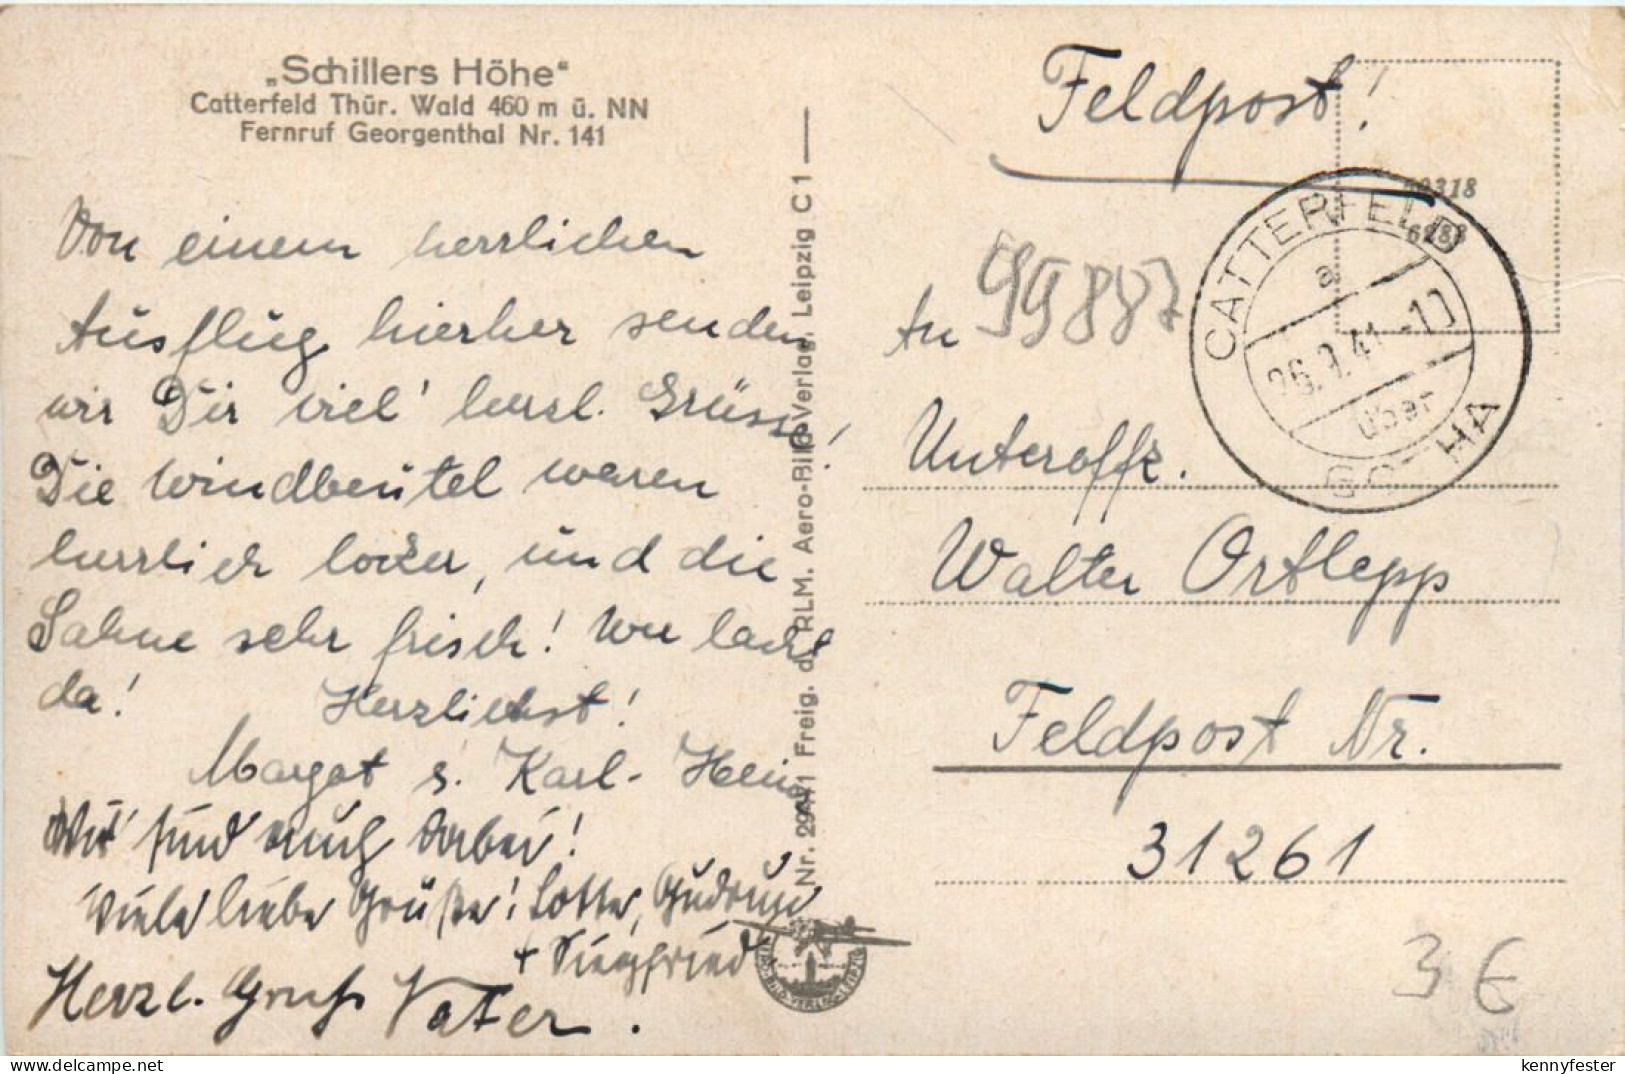 „Schillers Höhe“
Catterfeld Thür. Wald 460 m ü. NN
Fernruf Georgenthal Nr. 141
Von einem herrlichen
Ausflug hierher senden
wir Dir viel' herzl. Grüsse!
Die Windbeutel waren
herrlich locker, und die
Sahne sehr frisch! Wer lacht
da! Herzlichst!
Margot u. Karl-Heinz
Wir sind auch dabei!
Viele liebe Grüße! Lotte, Gudrun
+ Siegfried
Herzl. Gruß Vater.
Freig. d. RLM. Aero-Bild-Verlag, Leipzig C 1
Feldpost!
CATTERFELD
a
26.9.41.-10
über
GOTHA
An 99887
Unteroffz.
Walter Ortlepp
Feldpost Nr.
31261
3 €
kennyfester